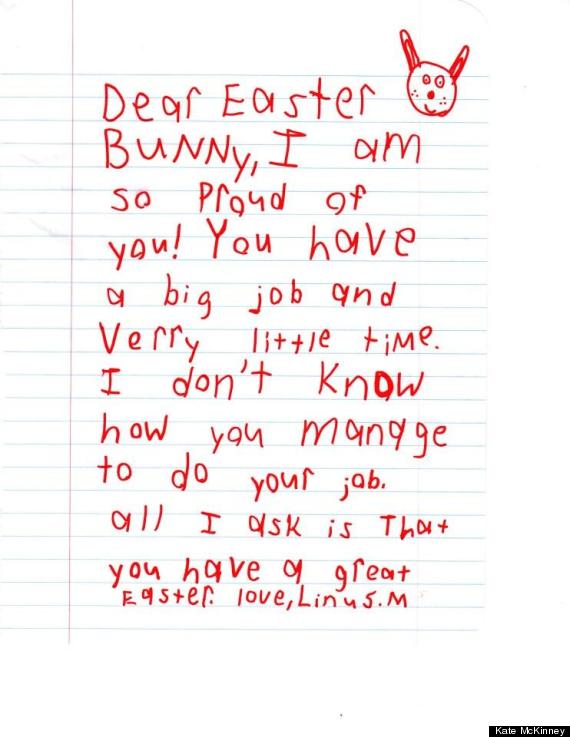 Dear Easter
Bunny, I am
so Proud of
you! You have
a big job and
Verry little time.
I don't know
how you manage
to do your job.
all I ask is That
you have a great
Easter. love, Linus.M
Kate McKinney